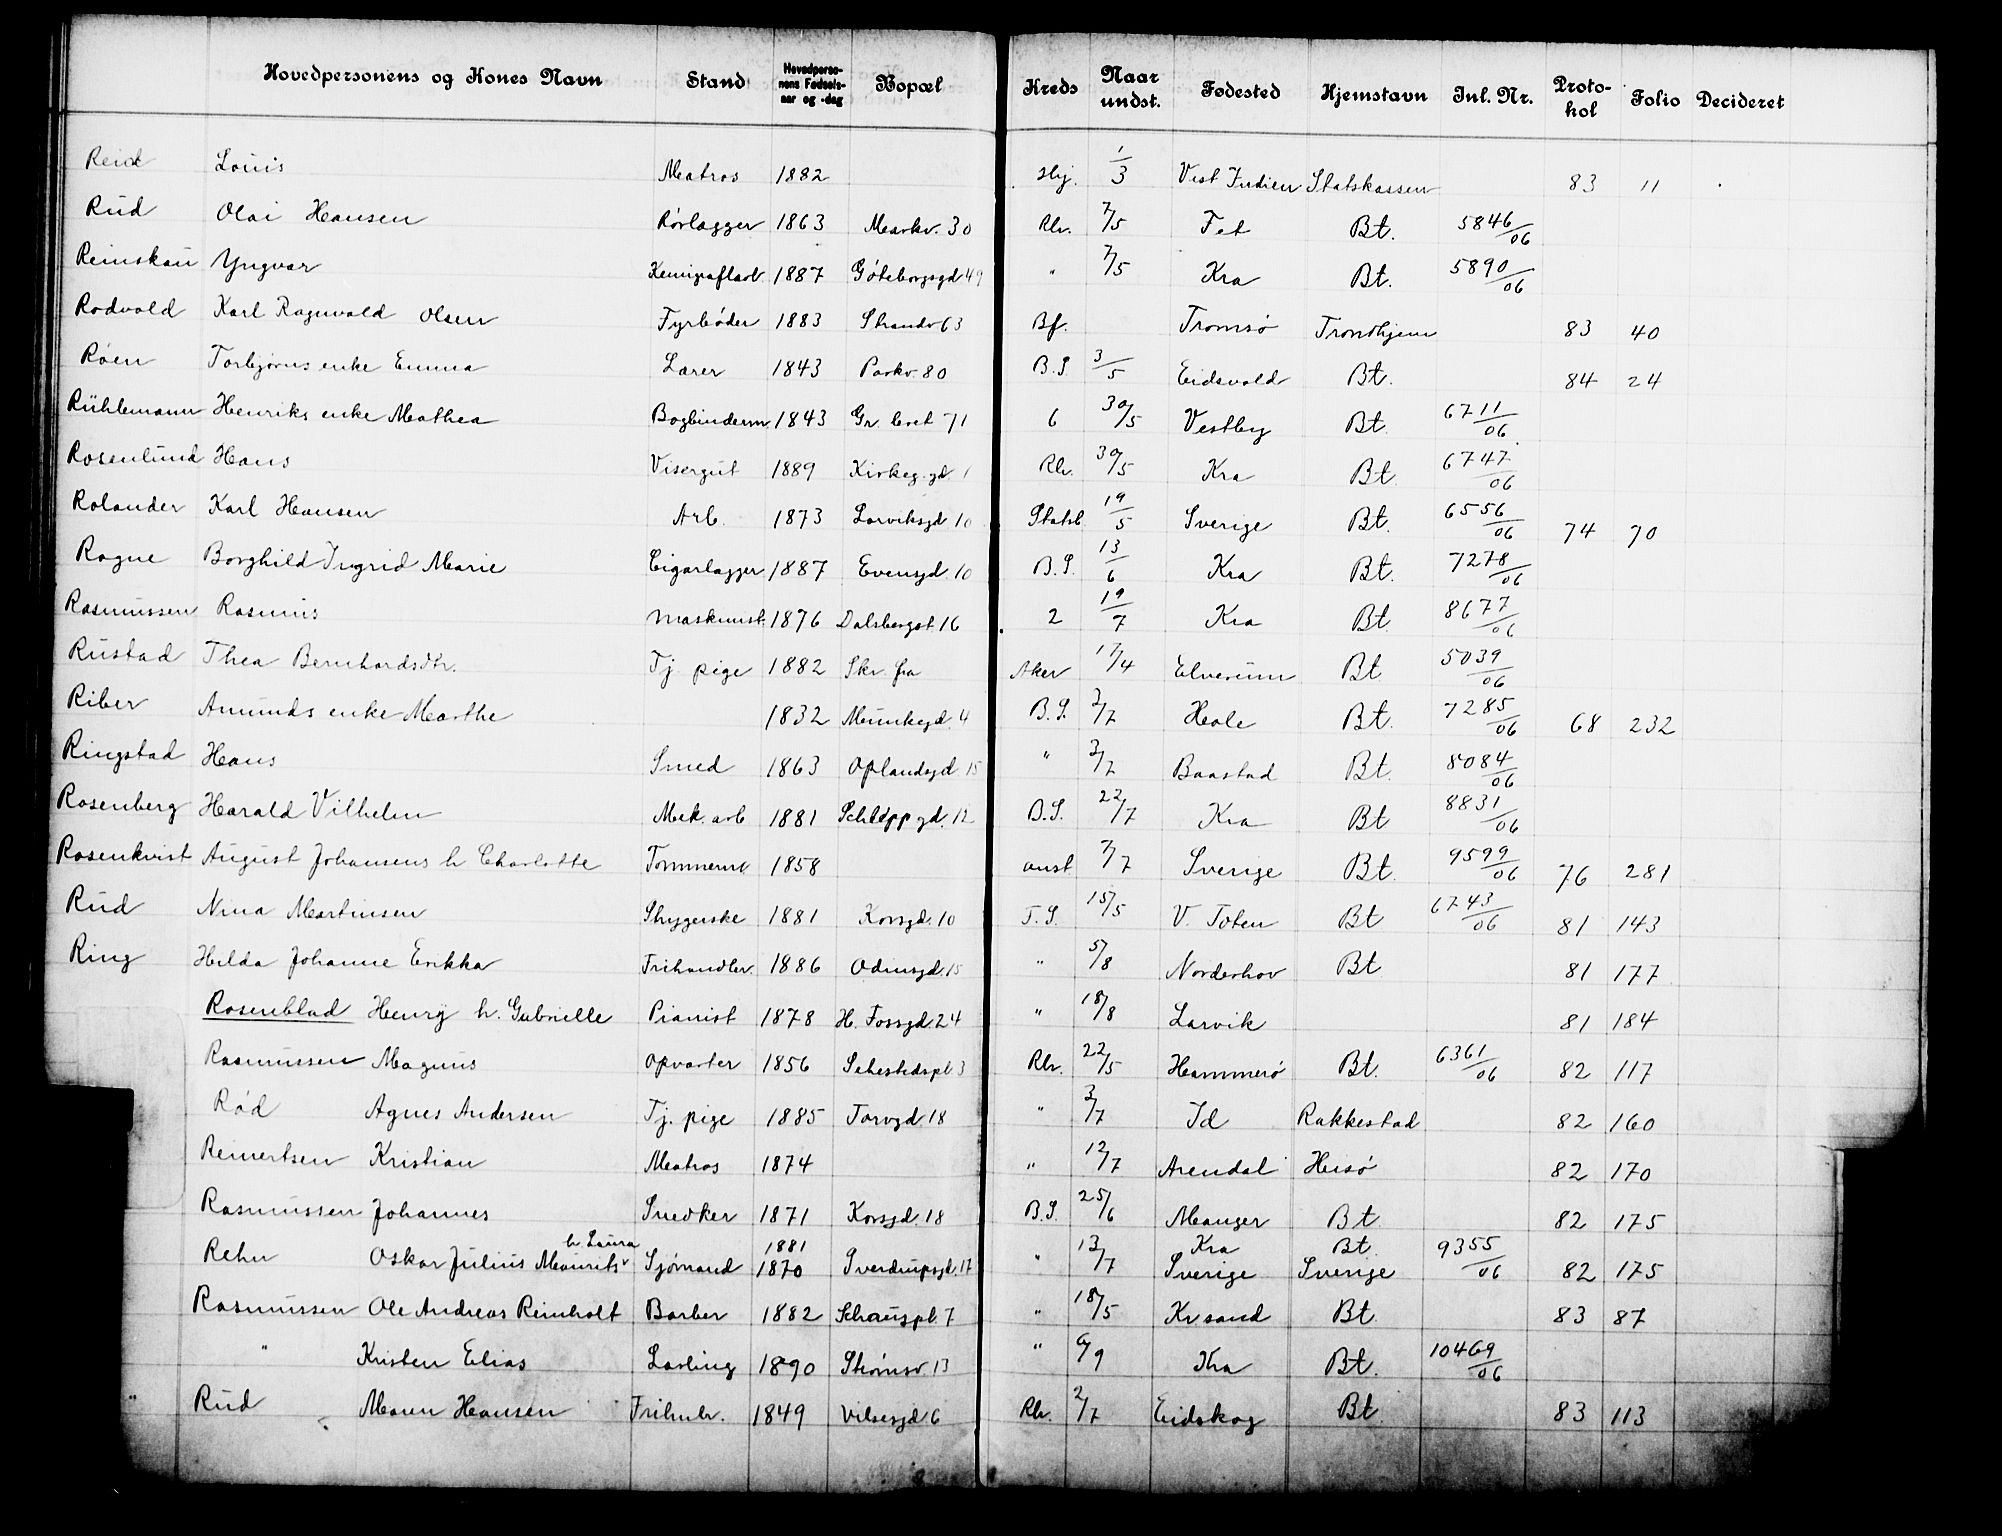 Hovedpersonens og Kones Navn Stand Hovedperso-nens Fødsels-aar og -dag Bopæl Kreds Naar undst. Fødested Hjemstavn Inl. Nr. Proto-kol Folio Decideret
Reid Louis Matros 1882 Hj. 1/3 Vest Indien Statskassen 83 11
Rud Olai Hansen Rørlægger 1863 Markv. 30 Rlv. 7/5 Fet Bt. 5846/06
Reinskau Yngvar KemigrafLærl. 1887 Göteborgsgd 49 " 7/5 Kra Bt. 5890/06
Rodvald Karl Ragnvald Olsen Fyrbøder 1883 Strandv 63 Bf. Tromsø Trondhjem 83 40
Røen Torbjørns enke Emma Lærer 1843 Parkv. 80 B.S. 3/5 Eidsvold Bt. 84 24
Rühlemann Henriks enke Mathea Bogbinderm. 1843 Gr. leret 71 6 30/5 Vestby Bt. 6711/06
Rosenlund Hans Visergut 1889 Kirkeg.gd. 1 Rlv. 30/5 Kra Bt. 6747/06
Rolander Karl Hansen Arb. 1873 Larviksgd 10 Statsb. 19/5 Sverige Bt. 6556/06 74 70
Rogne Borghild Ingrid Marie Cigarlægger 1887 Evensgd. 10 B.S. 13/6 Kra Bt. 7278/06
Rasmussen Rasmus Maskinist. 1876 Dalsbergst. 16 2 19/7 Kra Bt. 8677/06
Rustad Thea Bernhardsdtr. Tj pige 1882 Skr. fra Aker 17/4 Elverum Bt 5039/06
Riber Amunds enke Marthe 1832 Munkegd. 4 B.S. 3/7 Hole Bt. 7285/06 68 232
Ringstad Hans Smed 1863 Oplandsgd. 15 " 3/7 Baastad Bt. 8084/06
Rosenberg Harald Vilhelm Mek. arb 1881 Schleppgd. 12 B.S. 22/7 Kra Bt 8831/06
Rosenkvist August Johansens h Charlotte Tømmerm 1858 anst 7/7 Sverige Bt. 9599/06 76 281
Rud Nina Martinsen Strygerske 1881 Korsgd. 10 T.S. 15/5 V. Toten Bt 6743/06 81 143
Ring Hilda Johanne Erikka Frihandler. 1886 Odinsgd. 15 " 5/8 Norderhov Bt 81 177
Rosenblad Henry h. Gabrielle Pianist 1878 H. Fossgd. 24 " 18/8 Larvik 81 184
Rasmussen Magnus Opvarter 1856 Sehestedspl 3 Rlv. 22/5 Hammerø Bt. 6361/06 82 117
Rød Agnes Andersen Tj. pige 1885 Torvgd. 18 " 3/7 Id Rakkestad 82 160
Reinertsen Kristian Matros 1874 " 12/7 Arendal Hisø 82 170
Rasmussen Johannes Snedker 1871 Korsgd. 18 B.S. 25/6 Manger Bt 82 175
h. Laura 1881 Kra Bt.
Rehn Oskar Julius Maurits Sjømand 1870 Sverdrupsgd. 17 " 13/7 Sverige Sverige 9355/06 82 175
Rasmussen Ole Andreas Reinholt Barber 1882 Schouspl. 7 " 18/5 Krsand Bt. 83 87
" Kristen Elias Lærling 1890 Strømsv. 13 " 6/9 Kra Bt. 10469/06
" Rud Maren Hansen Frihnlr. 1849 Vilsesgd 6 Rlv. 2/7 Eidskog Bt 83 113